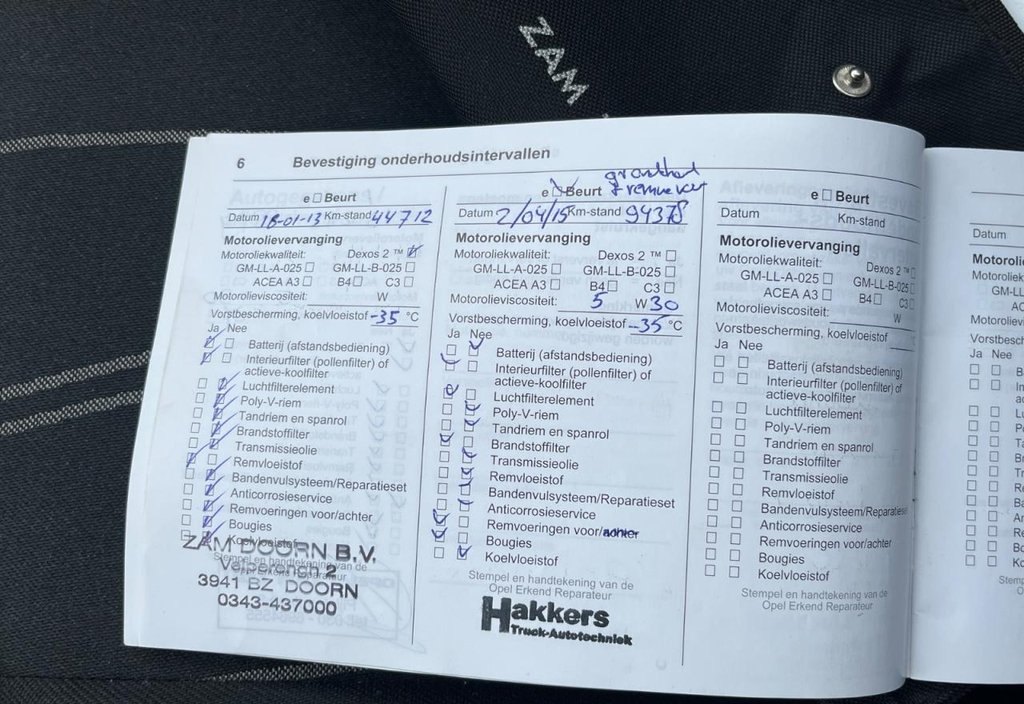 ZAM
6 Bevestiging onderhoudsintervallen
e □ Beurt
Datum 18-01-13 Km-stand 44712
Motorolievervanging
Motoroliekwaliteit: Dexos 2 ™ □
GM-LL-A-025 □ GM-LL-B-025 □
ACEA A3 □ B4 □ C3 □
Motorolieviscositeit: W
Vorstbescherming, koelvloeistof -35 °C
Ja Nee
Batterij (afstandsbediening)
Interieurfilter (pollenfilter) of
actieve-koolfilter
Luchtfilterelement
Poly-V-riem
Tandriem en spanrol
Brandstoffilter
Transmissieolie
Remvloeistof
Bandenvulsysteem/Reparatieset
Anticorrosieservice
Remvoeringen voor/achter
Bougies
Koelvloeistof
ZAM DOORN B.V.
Stempel en handtekening van de
Velperengh 2
3941 BZ DOORN
0343-437000
e □ Beurt
Datum 2/04/15 Km-stand 94378
Motorolievervanging
Motoroliekwaliteit: Dexos 2 ™ □
GM-LL-A-025 □ GM-LL-B-025 □
ACEA A3 □ B4 □ C3 □
Motorolieviscositeit: 5 W 30
Vorstbescherming, koelvloeistof -35 °C
Ja Nee
Batterij (afstandsbediening)
Interieurfilter (pollenfilter) of
actieve-koolfilter
Luchtfilterelement
Poly-V-riem
Tandriem en spanrol
Brandstoffilter
Transmissieolie
Remvloeistof
Bandenvulsysteem/Reparatieset
Anticorrosieservice
Remvoeringen voor/achter
Bougies
Koelvloeistof
Stempel en handtekening van de
Opel Erkend Reparateur
Hakkers
Truck-Autotechniek
e □ Beurt
Datum Km-stand
Motorolievervanging
Motoroliekwaliteit: Dexos 2 ™ □
GM-LL-A-025 □ GM-LL-B-025 □
ACEA A3 □ B4 □ C3 □
Motorolieviscositeit: W
Vorstbescherming, koelvloeistof °C
Ja Nee
Batterij (afstandsbediening)
Interieurfilter (pollenfilter) of
actieve-koolfilter
Luchtfilterelement
Poly-V-riem
Tandriem en spanrol
Brandstoffilter
Transmissieolie
Remvloeistof
Bandenvulsysteem/Reparatieset
Anticorrosieservice
Remvoeringen voor/achter
Bougies
Koelvloeistof
Stempel en handtekening van de
Opel Erkend Reparateur
Datum
Ja Nee